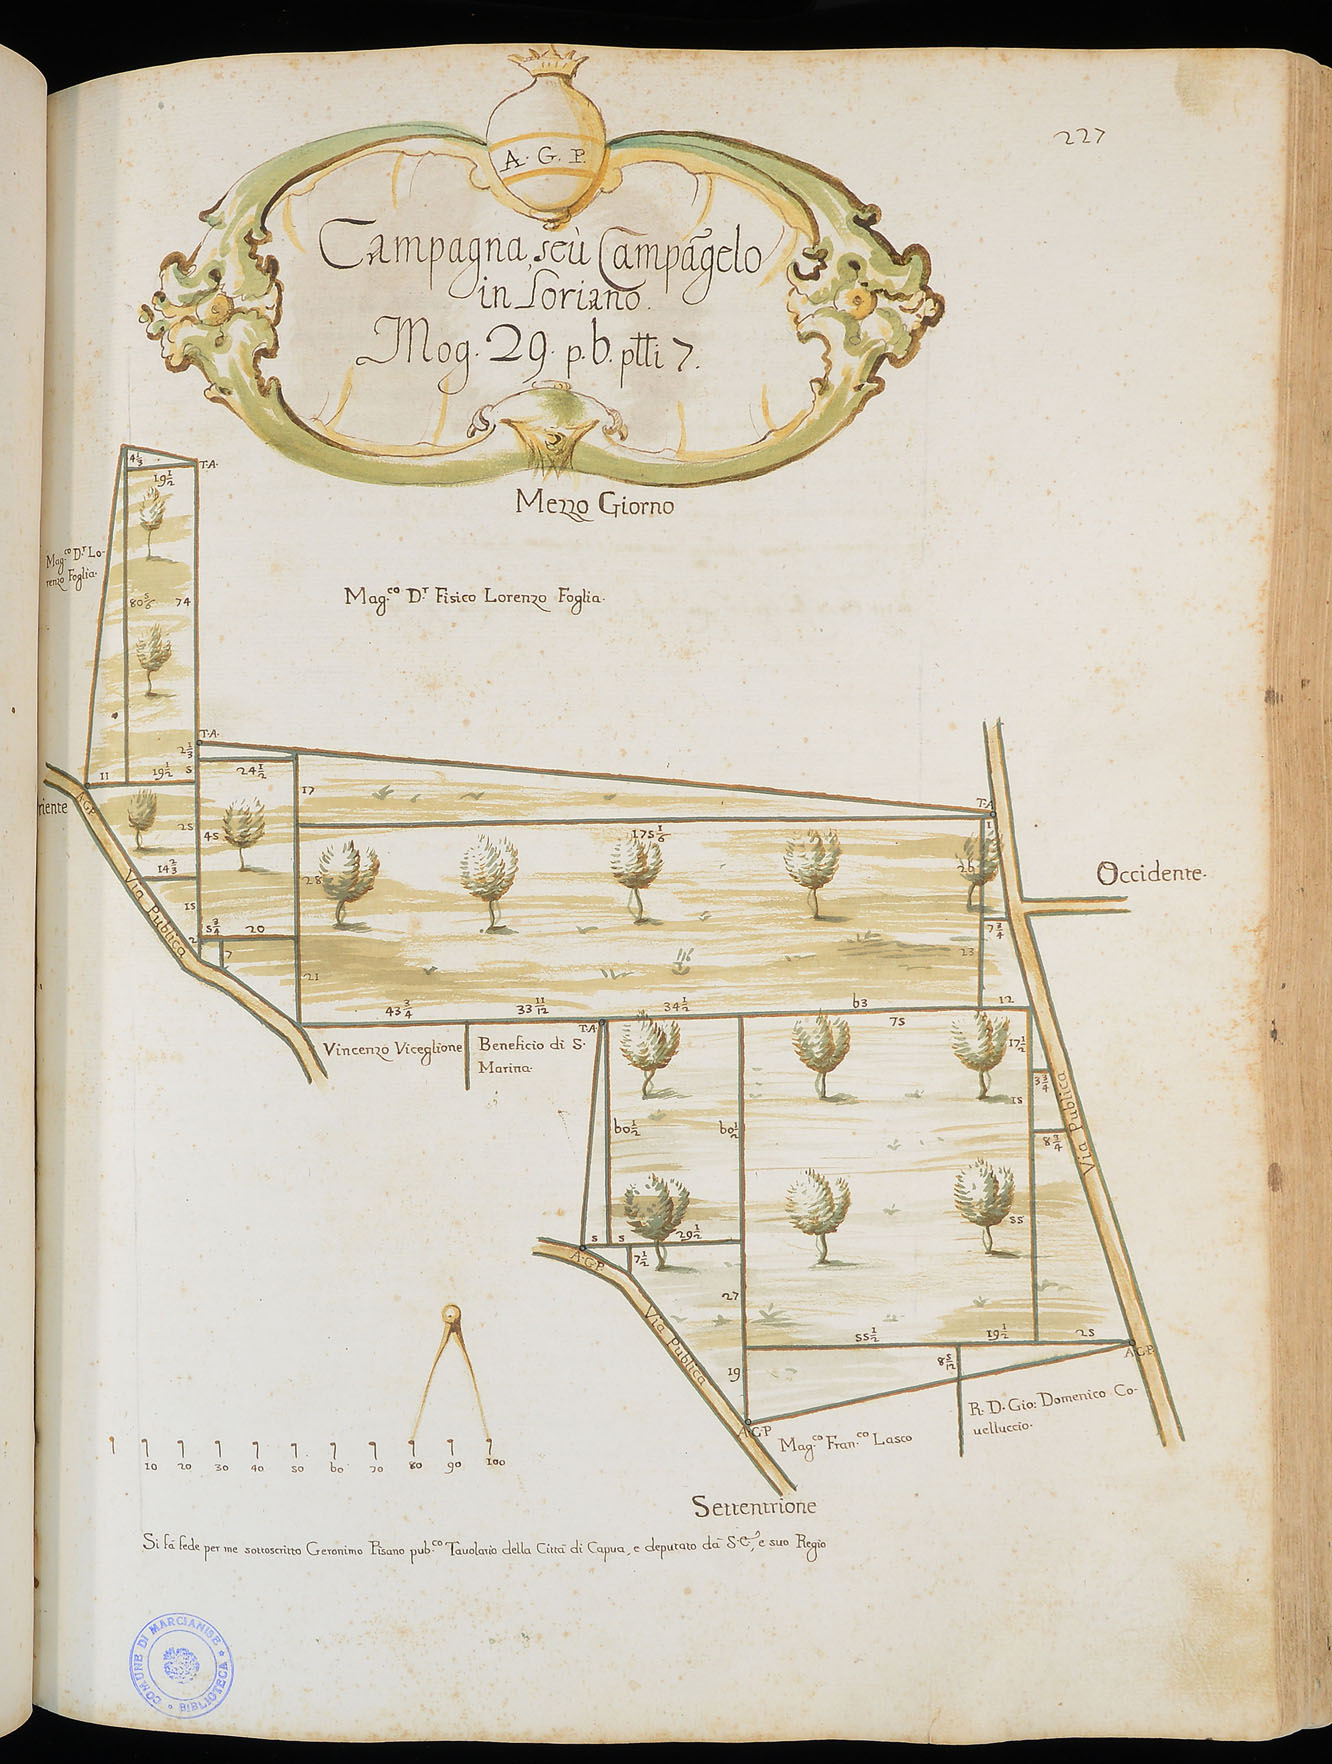 227
A. G. P.
Campagna, seù Campāgelo
in Loriano.
Mog. 29. p. 6. ptti 7.
Mezzo Giorno
4 1/3
T.A.
19 1/2
Mag.co D.r Lo-
renzo Foglia.
80 5/6 74
Mag.co D.r Fisico Lorenzo Foglia.
T.A.
2 1/3
11 19 1/2 5
24 1/2
17
T.A.
riente
A.G.P.
25
45
175 1/6
1
28
26
14 2/3
Occidente.
Via Publica
15
5 3/4 20
2
7
7 3/4
21
23
43 3/4 33 11/12 34 1/2 63 12
T.A.
75
Vincenzo Viceglione
Beneficio di S.
Marina.
17 1/2
3 3/4
15
60 1/2 60 1/2
8 3/4
Via Publica
55
5 5 29 1/2
A.G.P.
7 1/2
27
Via Publica
55 1/2 19 1/2 25
A.G.P.
8 5/12
19
R. D. Gio: Domenico Co-
uelluccio.
A.G.P.
Mag.co Fran.co Lasco
10 20 30 40 50 60 70 80 90 100
Settentrione
Si fà fede per me sottoscritto Geronimo Pisano pub.co Tauolario della Città di Capua, e deputato dà S.C., e suo Regio
COMUNE DI MARCIANISE
BIBLIOTECA